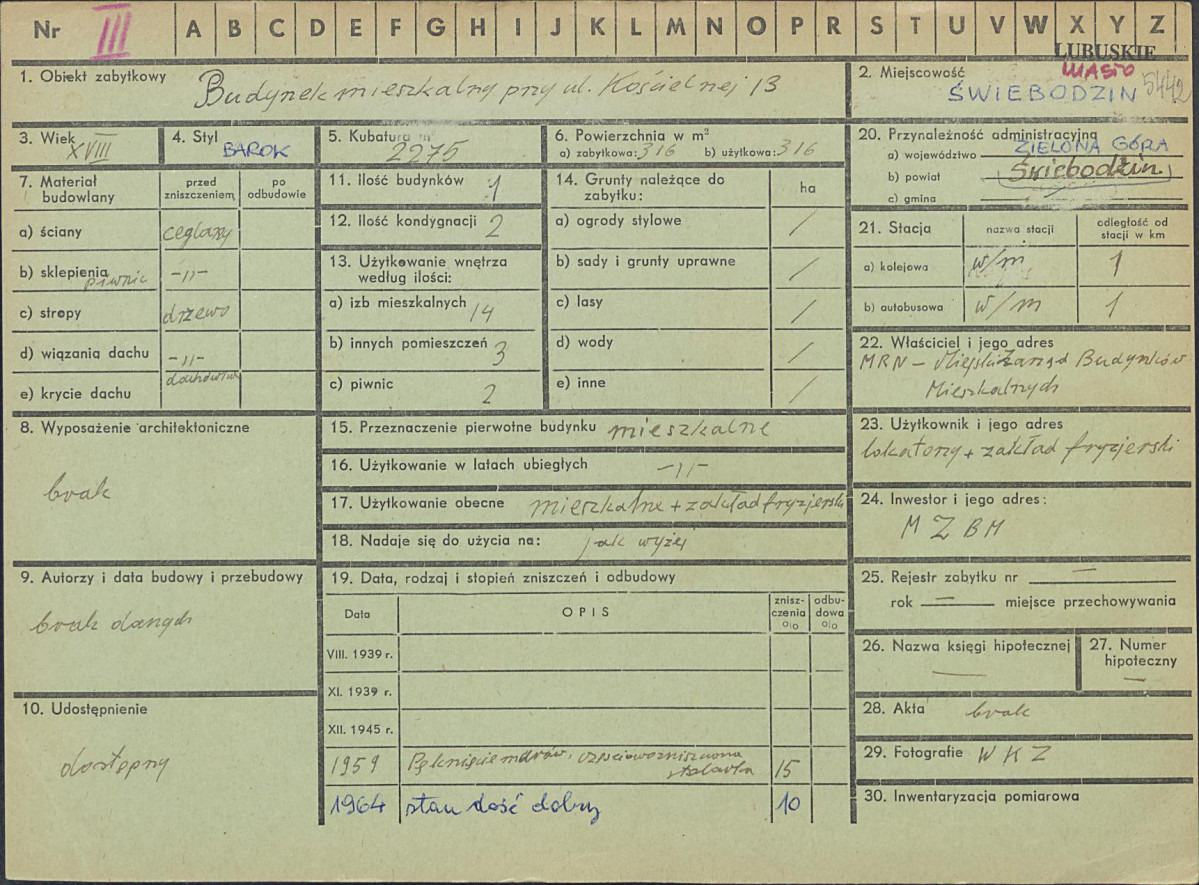 Nr III A B C D E F G H I J K L M N O P R S T U V W X Y Z
LUBUSKIE
1. Obiekt zabytkowy Budynek mieszkalny przy ul. Kościelnej 13
2. Miejscowość MIASTO
ŚWIEBODZIN 5442
3. Wiek XVIII
4. Styl BAROK
5. Kubatura m³ 2275
6. Powierzchnia w m²
a) zabytkowa: 316 b) użytkowa: 316
7. Materiał budowlany
przed zniszczeniem
po odbudowie
a) ściany ceglany
b) sklepienia piwnic -"-
c) stropy drzewo
d) wiązania dachu -"-
e) krycie dachu dachówka
8. Wyposażenie architektoniczne
brak
9. Autorzy i data budowy i przebudowy
brak danych
10. Udostępnienie
dostępny
11. Ilość budynków 1
12. Ilość kondygnacji 2
13. Użytkowanie wnętrza
według ilości:
a) izb mieszkalnych 14
b) innych pomieszczeń 3
c) piwnic 2
14. Grunty należące do
zabytku: ha
a) ogrody stylowe /
b) sady i grunty uprawne /
c) lasy /
d) wody /
e) inne /
15. Przeznaczenie pierwotne budynku mieszkalne
16. Użytkowanie w latach ubiegłych -"-
17. Użytkowanie obecne mieszkalne + zakład fryzjerski
18. Nadaje się do użycia na: jak wyżej
19. Data, rodzaj i stopień zniszczeń i odbudowy
Data OPIS zniszczenia o/o odbudowa o/o
VIII. 1939 r.
XI. 1939 r.
XII. 1945 r.
1959 Pęknięcie murów, częściowo zniszczona
15
1964 stan dość dobry 10
20. Przynależność administracyjna
a) województwo ZIELONA GÓRA
b) powiat Świebodzin
c) gmina /
21. Stacja nazwa stacji odległość od stacji w km
a) kolejowa w/m 1
b) autobusowa w/m 1
22. Właściciel i jego adres
MRN – Miejski Zarząd Budynków
Mieszkalnych
23. Użytkownik i jego adres
lokatorzy + zakład fryzjerski
24. Inwestor i jego adres:
M Z B M
25. Rejestr zabytku nr —
rok — miejsce przechowywania
26. Nazwa księgi hipotecznej
—
27. Numer hipoteczny
—
28. Akta brak
29. Fotografie W K Z
30. Inwentaryzacja pomiarowa